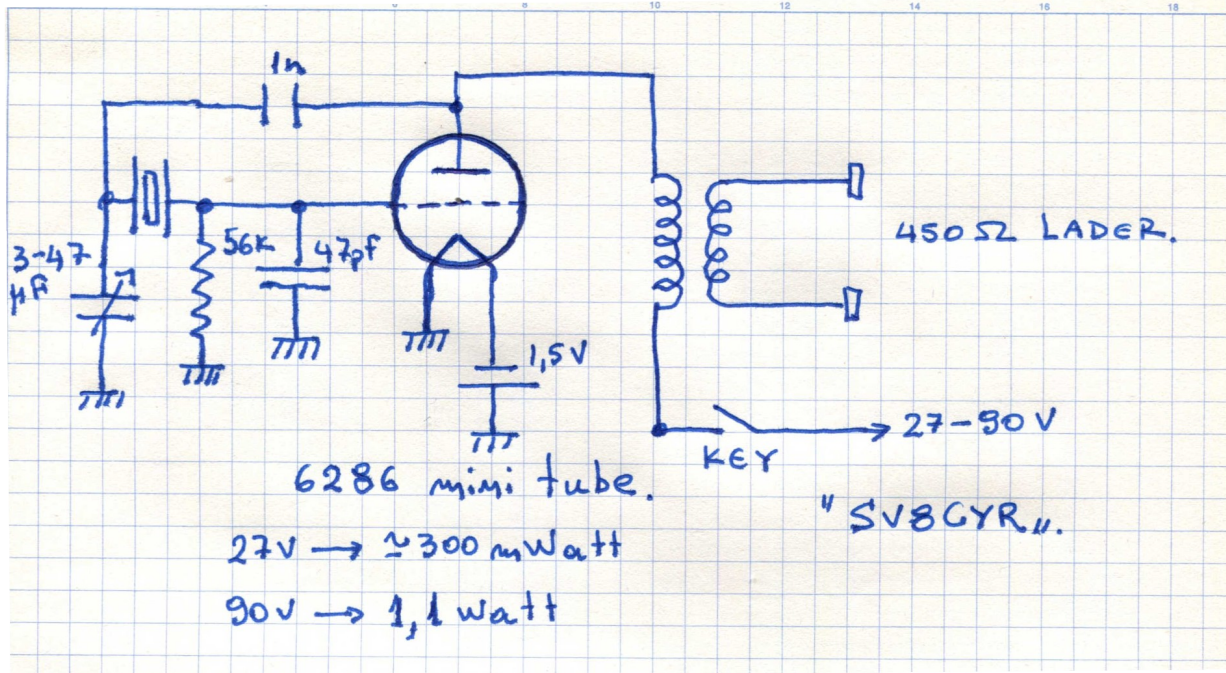 6 8 10 12 14 16 18
1n
3-47
µF
56k
47pf
450Ω LADER.
1,5V
27-90V
KEY
6286 mini tube.
"SV8CYR".
27V → ≃300 mWatt
90V → 1,1 Watt